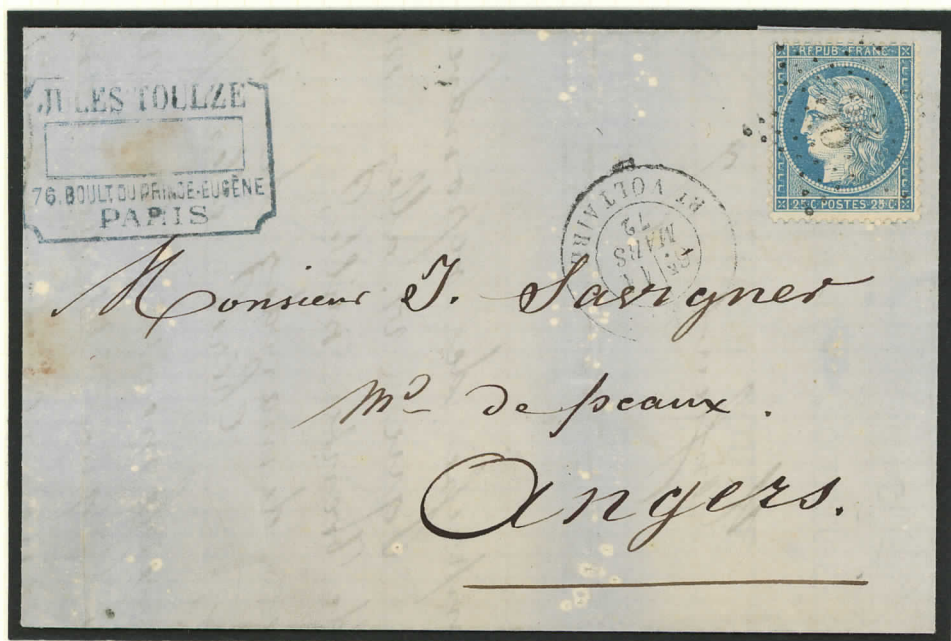 JULES TOULZE
76. BOULT. DU PRINCE-EUGÈNE
PARIS
REPUB. FRANC.
25 C. POSTES 25 C.
Bt VOLTAIRE
MARS
72
Monsieur J. Savigner
Md de peaux.
Angers.